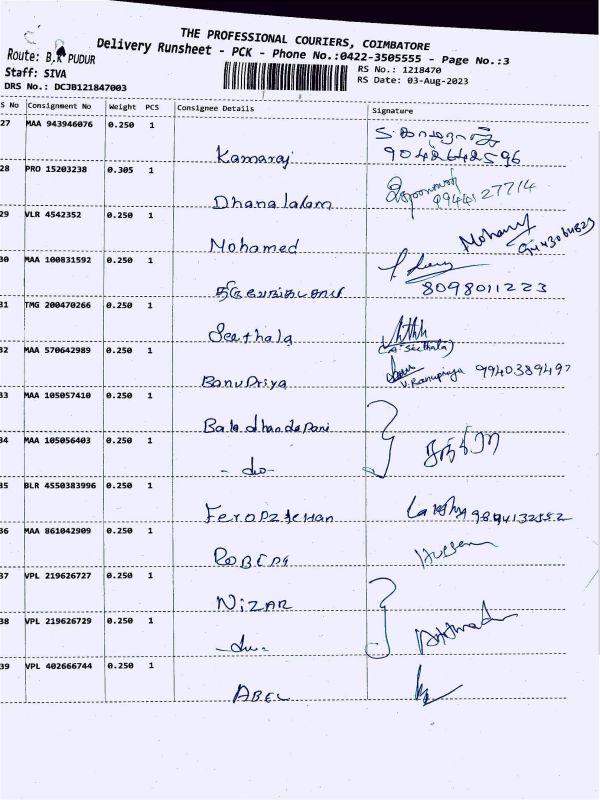 THE PROFESSIONAL COURIERS, COIMBATORE
Delivery Runsheet - PCK - Phone No.:0422-3505555 - Page No.:3
Route: B.K PUDUR
Staff: SIVA
RS No.: 1218470
DRS No.: DCJB121847003
RS Date: 03-Aug-2023
S No Consignment No Weight PCS Consignee Details Signature
27 MAA 943946076 0.250 1
Kamaraj 9042642596
28 PRO 15203238 0.305 1
Dhanalalam 9944127714
29 VLR 4542352 0.250 1
Mohamed Mohamed
30 MAA 100831592 0.250 1
8098011223
31 TMG 200470266 0.250 1
Seethala (A. Seethala)
32 MAA 570642989 0.250 1
BanuPriya V. Banupriya 9940389497
33 MAA 105057410 0.250 1
Baladhandapani
34 MAA 105056403 0.250 1
- do -
35 BLR 4550383996 0.250 1
9894132552
36 MAA 861042909 0.250 1
Hussain
37 VPL 219626727 0.250 1
NIZAR
38 VPL 219626729 0.250 1
- do -
39 VPL 402666744 0.250 1
ABEL